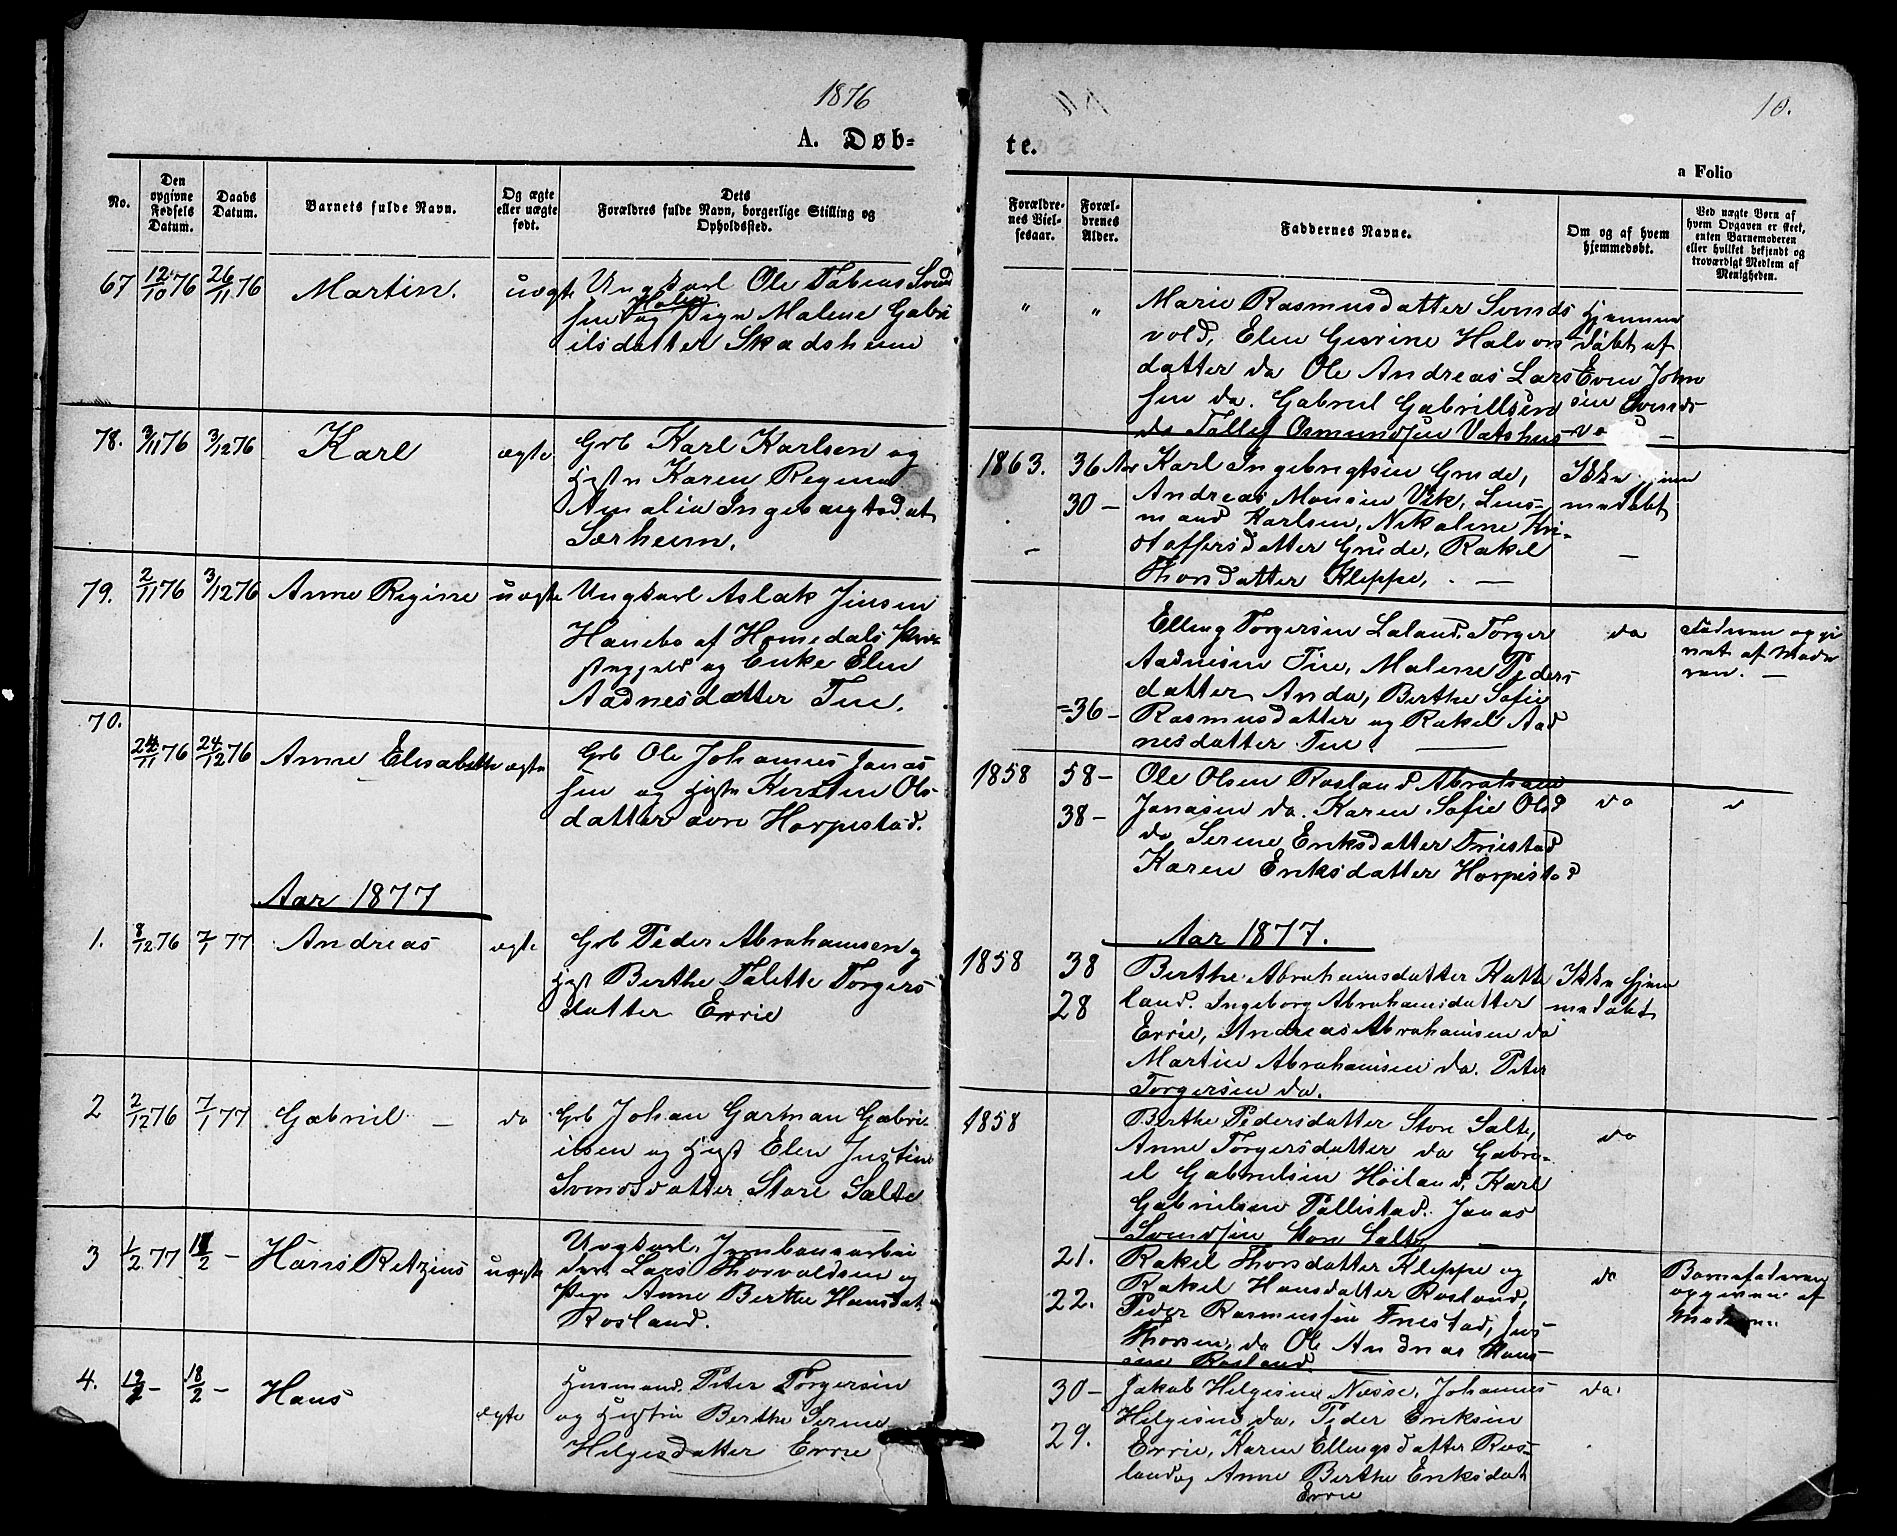 1876
10.
A. Døb-
te.
a Folio
No.
Den
opgivne
Fødsels
Datum.
Daabs
Datum.
Barnets fulde Navn.
Og ægte
eller uægte
født.
Dets
Forældres fulde Navn, borgerlige Stilling og
Opholdssted.
Forældre-
nes Viel-
sesaar.
Foræl-
drenes
Alder.
Faddernes Navne.
Om og af hvem
hjemmedøbt.
Ved uægte Børn af
hvem Opgaven er skeet,
enten Barnemoderen
eller hvilket bekjendt og
troværdigt Medlem af
Menigheden.
67 12/10 76 26/11 76 Martin. uægte Ungkarl Ole Tobias Svend
sen og Pige Malene Gabri
ilsdatter Skadsheim
" " Marie Rasmusdatter Svends
vold, Elen Halvors
datter do Ole Andreas Lars
sen do. Gabriel Gabrillsen
do Tollef Osmundsen Vatshus
Hjemme
døbt af
Even John
sen Svends
78. 3/11 76 3/12 76 Karl ægte Grb Karl Karlsen og
Hustr Karen Regine
Amalia Ingebregtsdat
Særheim.
1863. 36 Aar Karl Ingebregtsen Grude,
30 - Andreas Monsen Vik, Lens-
mand Karlsen, Nikoline Kri-
stoffersdatter Grude, Rakel
Thorsdatter Kleppe, . —
Ikke hjem
medøbt
79. 2/11 76 3/12 76 Anne Regine uægte Ungkarl Aslak Jensen
Hanebo af Homedals Præ-
stegjeld og Enke Elen
Aadnesdatter Tue.
Elling Torgersen Laland. Torger
Aadnesen Tue, Malene Peders
datter Anda, Berthe Sofie
=36- Rasmusdatter og Rakel Aad
nesdatter Tue.
do
Faderen opgi
vet af Mode
ren. —
70.
24/11 76 24/12 76 Anne Elisabeth ægte Grb Ole Johannes Jonas
sen og Hustr Kirsten Ols-
datter øvre Horpestad.
1858 58- Ole Olsen Rosland Abraham
38- Jonasen do. Karen Sofie Olsd
do Serine Eriksdatter Friestad
Karen Eriksdatter Horpestad
do
Aar 1877
Aar 1877.
1. 8/12 76 7/1 77 Andreas ægte Grb Peder Abrahamsen og
Hust Berthe Talette Torgers
datter Errie
1858 38 Berthe Abrahamsdatter Hatte
28 land. Ingeborg Abrahamsdatter
Errie, Andreas Abrahamsen do
Martin Abrahamsen do. Peter
Torgersen do.
Ikke hjem
medøbt
2 2/12 76 7/1 77 Gabriel — do Grb Johan Garman Gabri-
ilsen og Hust Elen Justine
Svendsdatter Store Salte
1858 Berthe Pedersdatter Store Salte,
Anne Torgersdatter do Gabri-
el Gabrielsen Høiland, Karl
Gabrielsen Pollestad. Jonas
Svendsen Store Salte —
do
3 1/2 77 11/2 - Hans Retzius uægte Ungkarl. Jernbanearbei
der Lars Thorvaldsen og
Pige Anne Berthe Hansdat
Rosland.
21. Rakel Thorsdatter Kleppe og
Rakel Hansdatter Rosland,
22. Peder Rasmussen Friestad, Jens
Thorsen do Ole Andreas Hans-
sen Rosland
do
Barnefaderen
opgiven af
Moderen
4. 12/2 - 18/2 - Hans ægte Husmand. Peter Torgersen
og Hustru Berthe Serine
Helgesdatter Errie
30- Jakob Helgesen Næsse, Johannes
29. Helgesen do, Peder Eriksen
Errie, Karen Ellingsdatter Ros-
land og Anne Berthe Eriksdat
Errie
do